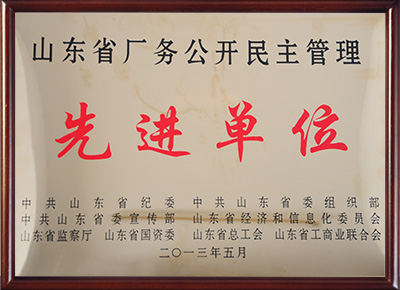 山东省厂务公开民主管理
先进单位
中共山东省纪委 中共山东省委组织部
中共山东省委宣传部 山东省经济和信息化委员会
山东省监察厅 山东省国资委 山东省总工会 山东省工商业联合会
二〇一三年五月